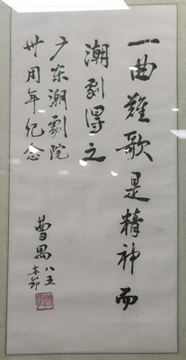 一曲难歌是精神而
潮剧得之
广东潮剧院
卅周年纪念
曹禺 八五
春节